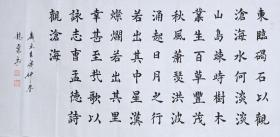 東臨碣石以觀
滄海水何淡淡
山島竦峙樹木
叢生百草豐茂
秋風蕭瑟洪波
涌起日月之行
若出其中星漢
燦爛若出其里
幸甚至哉歌以
詠志曹孟德詩
觀滄海